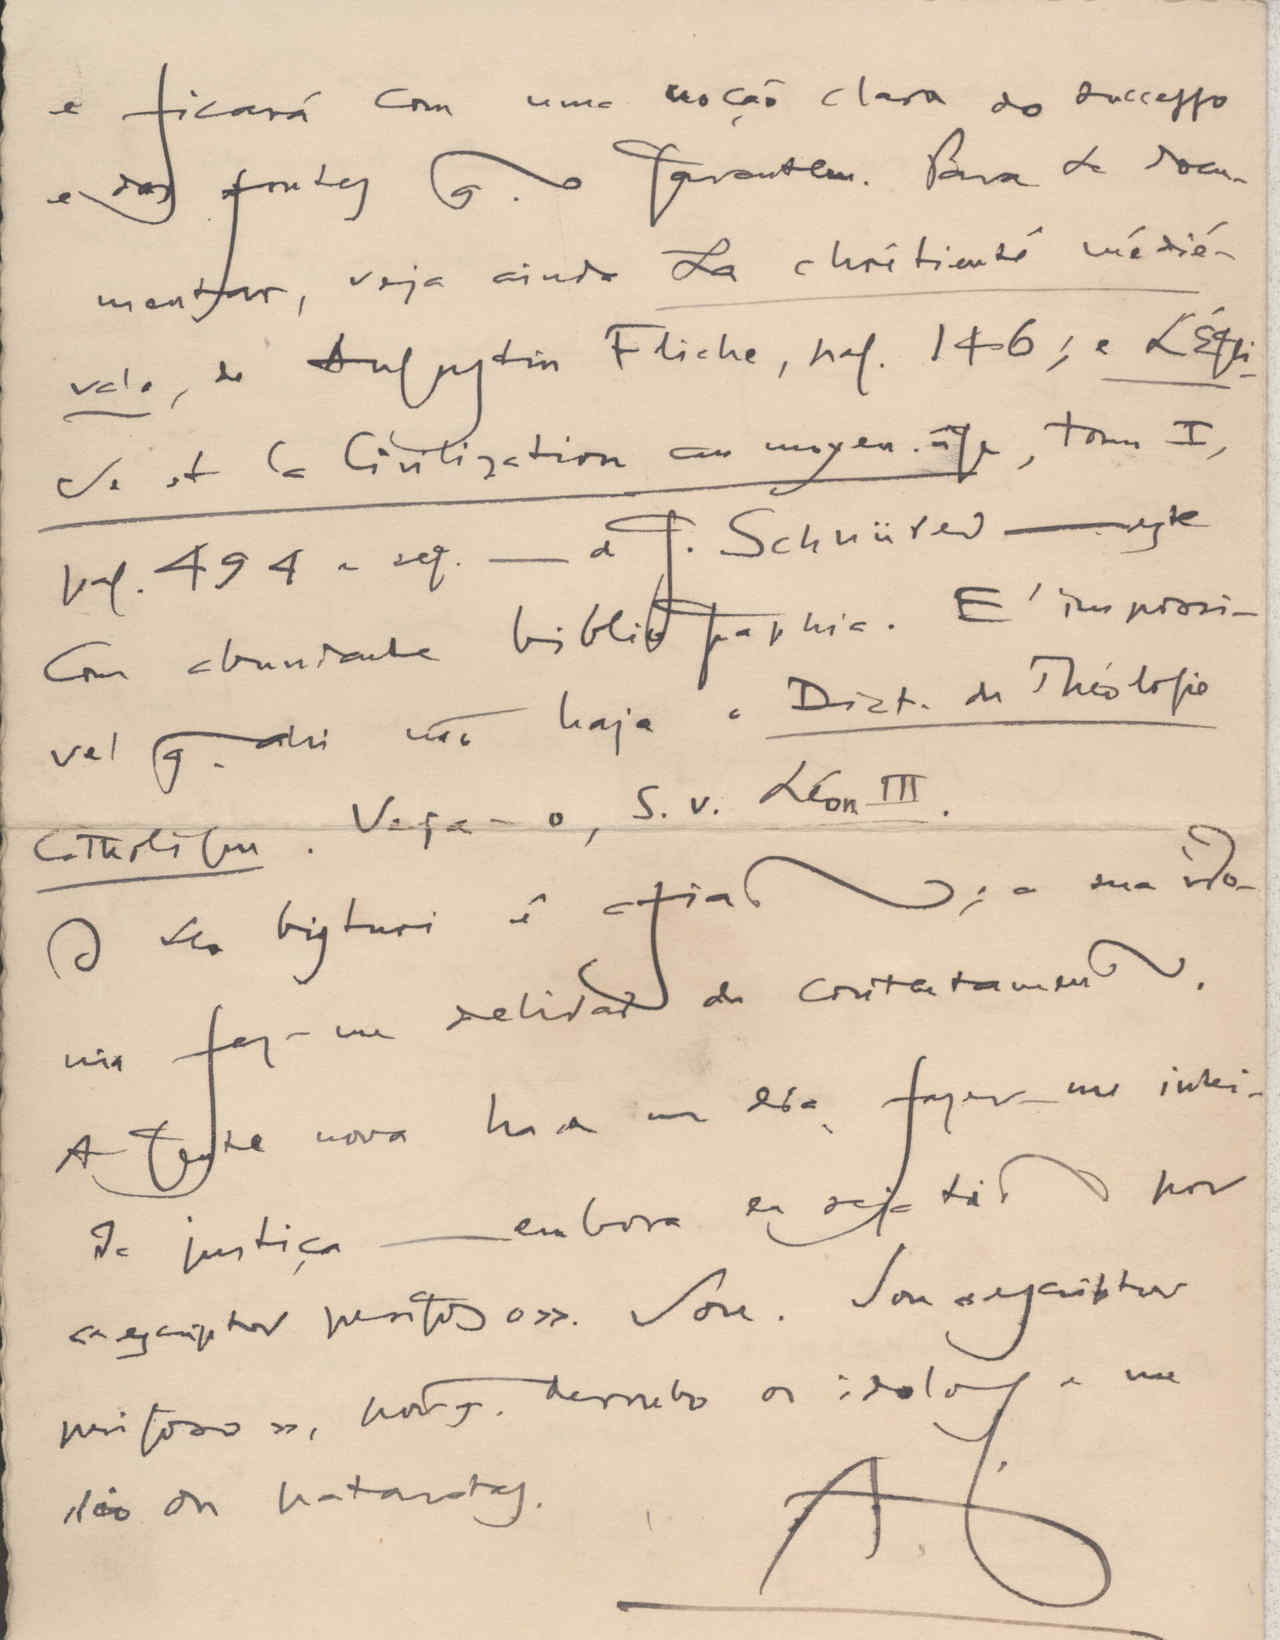 e ficará com uma noção clara do successo
e das fontes q. o garantem. Para se docu-
mentar, veja ainda La chrétienté médié-
vale, de Augustin Fliche, pag. 146; e L'Égli-
se et la Civilization au moyen-âge, tomo I,
pag. 494 e seg. — de G. Schnürer — este
com abundante bibliographia. E' impossi-
vel q. ahi não haja o Dict. de Théologie
Catholique. Veja-o, s. v. Léon III.
O seu bisturi é afiado; a sua iro-
nia faz-me delidad de contentamento.
A gente nova ha de um dia, fazer-me intei-
ra justiça — embora eu seja tido por
«escriptor perigoso». Sou. Sou «escriptor
perigoso», porq. derrubo os idolos e me
rio dos pataratas.
A. G.